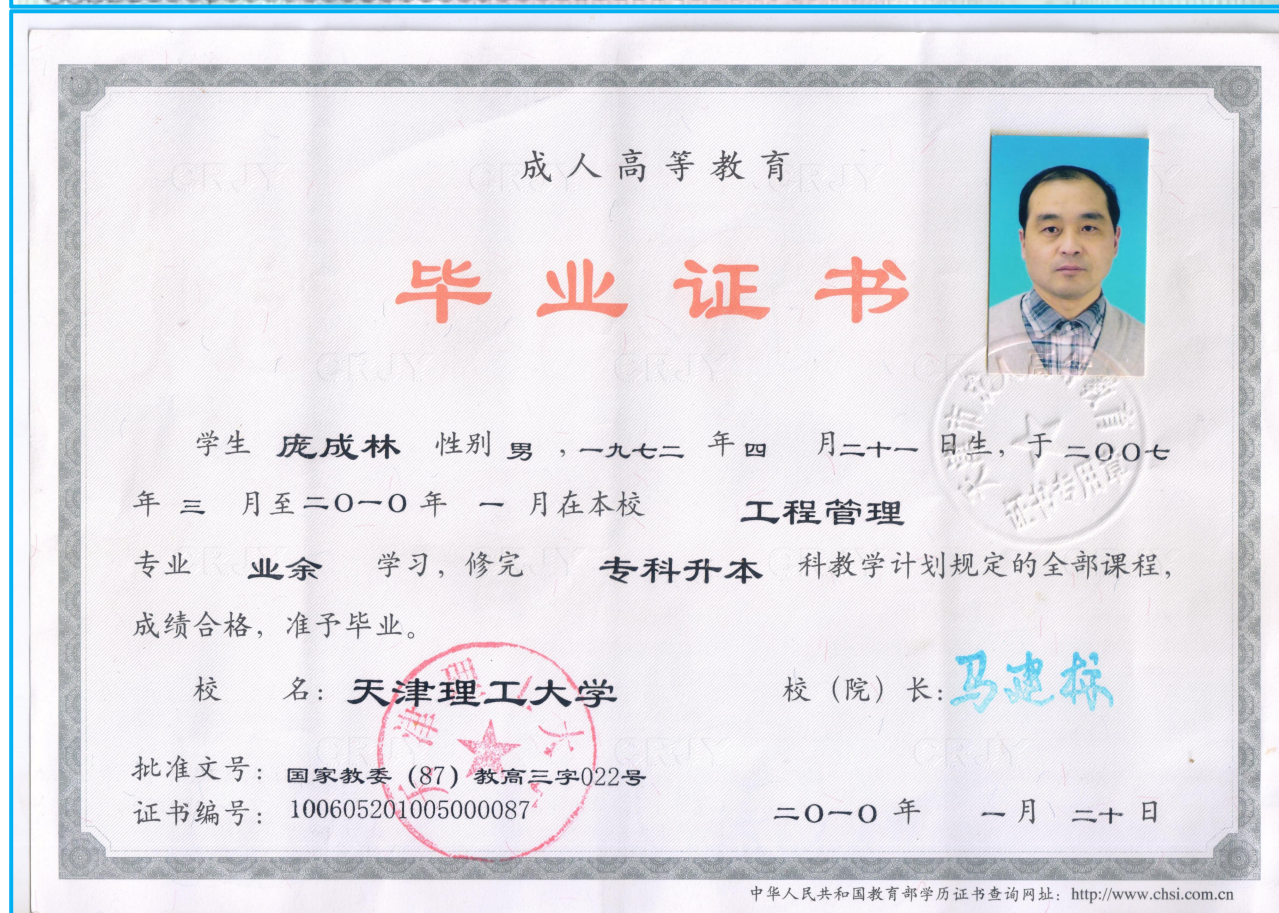 成人高等教育
毕业证书
学生 庞成林 性别 男 ，一九七二 年 四 月二十一 日生，于 二〇〇七
年 三 月至二〇一〇年 一 月在本校 工程管理
专业 业余 学习，修完 专科升本 科教学计划规定的全部课程，
成绩合格，准予毕业。
校 名：天津理工大学 校（院）长：马建标
天津理工大学
天津市成人高等教育
证书专用章
批准文号：国家教委（87）教高三字022号
证书编号：100605201005000087
二〇一〇年 一月 二十日
中华人民共和国教育部学历证书查询网址：http://www.chsi.com.cn